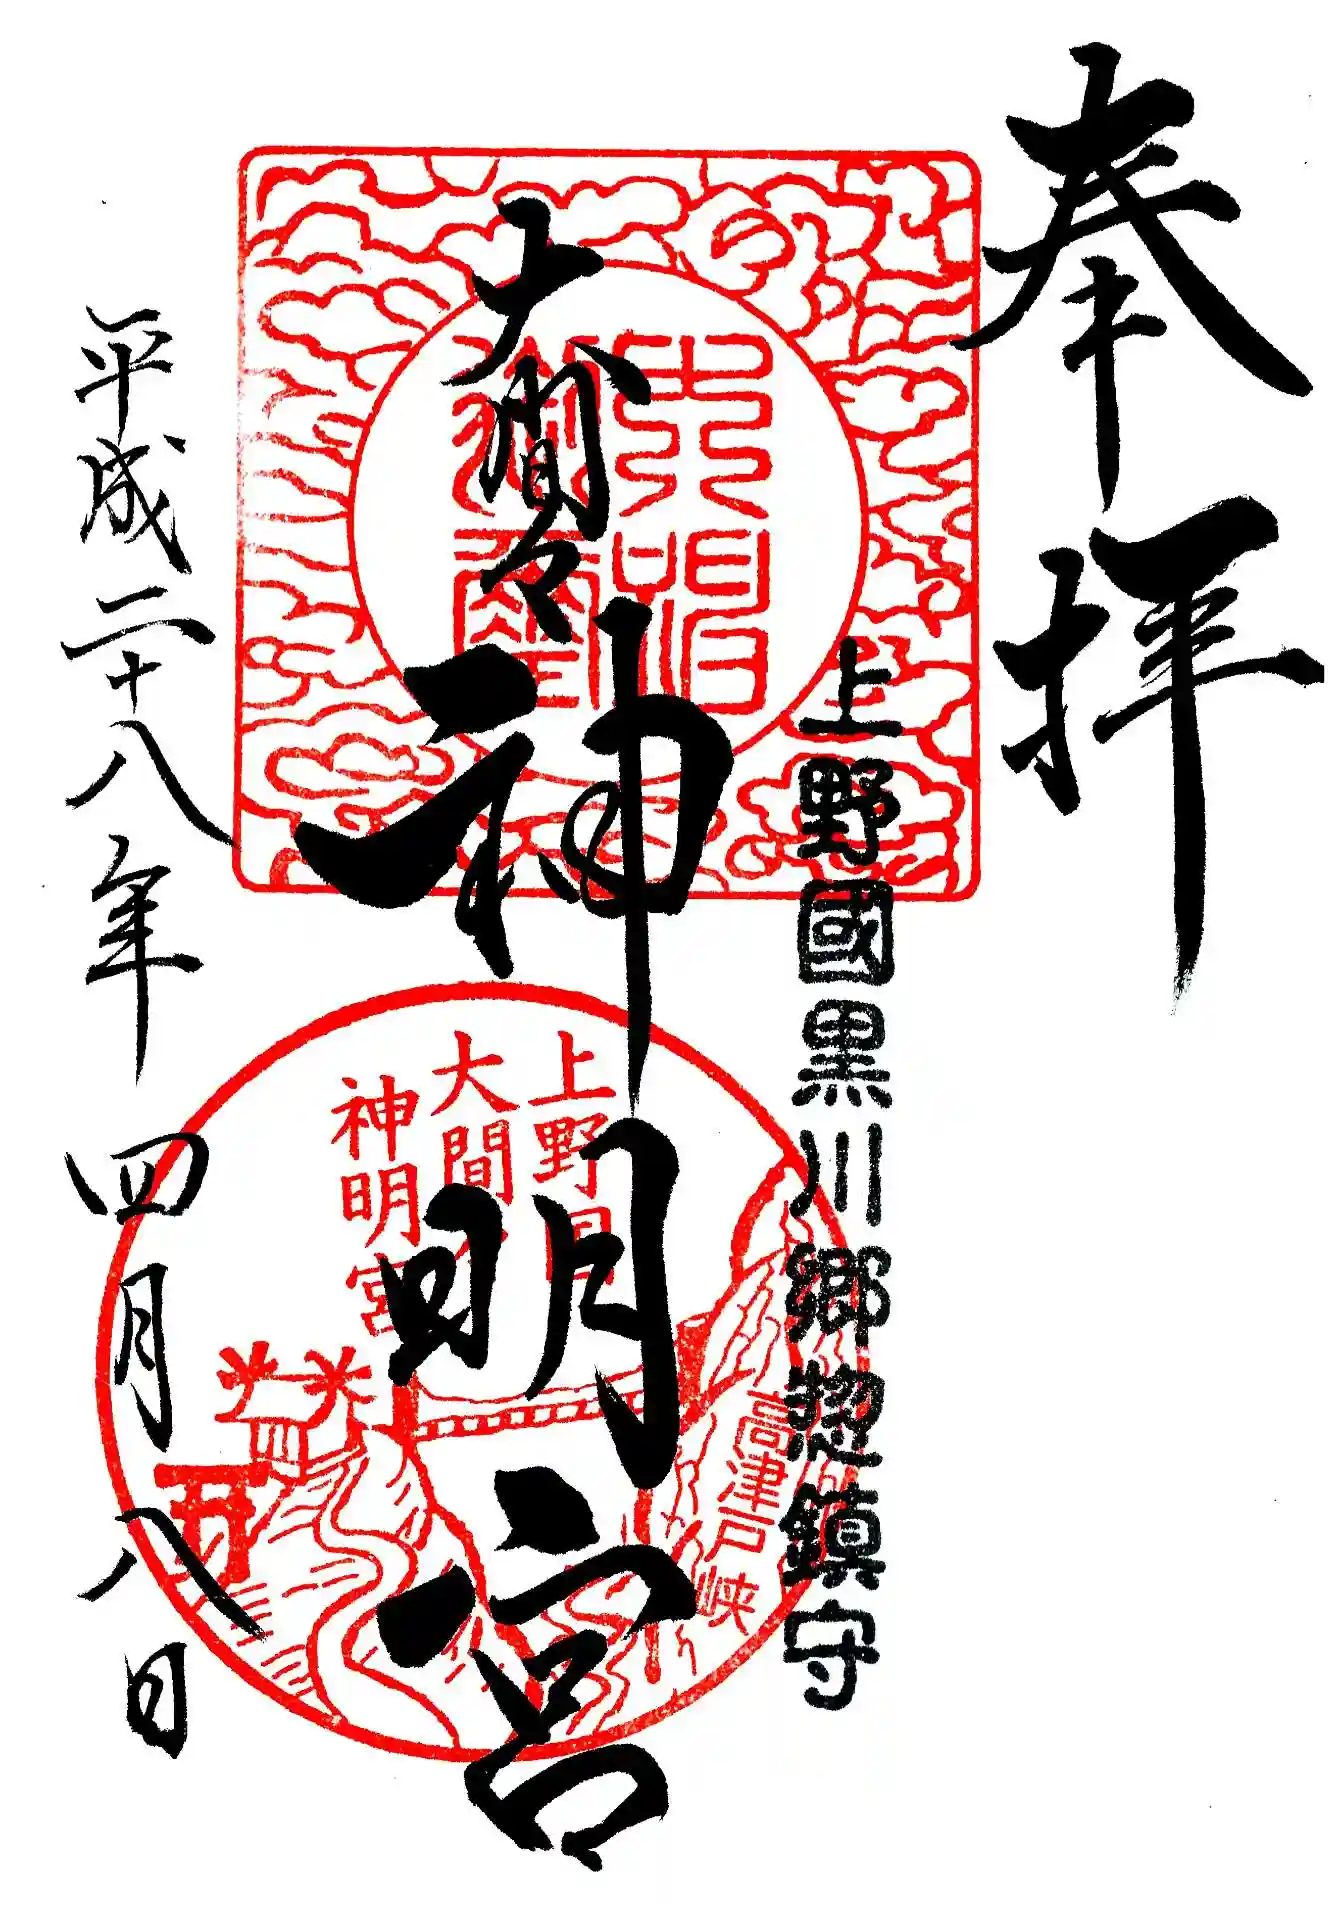 奉拝
上野國黒川郷惣鎮守
大間々
神明宮
平成二十八年 四月八日
上野国
大間々
神明宮
高津戸峡